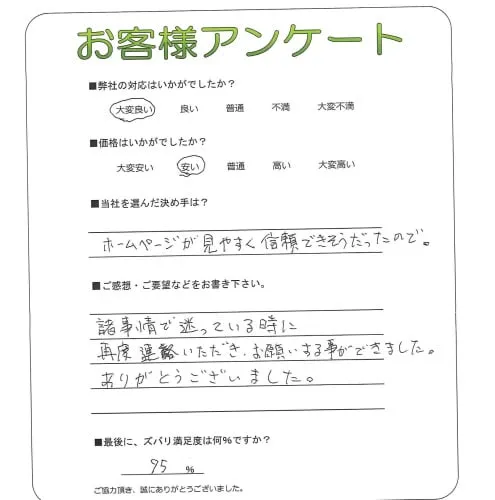 お客様アンケート
■弊社の対応はいかがでしたか？
大変良い 良い 普通 不満 大変不満
■価格はいかがでしたか？
大変安い 安い 普通 高い 大変高い
■当社を選んだ決め手は？
ホームページが見やすく信頼できそうだったので。
■ご感想・ご要望などをお書き下さい。
諸事情で迷っている時に
再度連絡いただき、お願いする事ができました。
ありがとうございました。
■最後に、ズバリ満足度は何％ですか？
95 ％
ご協力頂き、誠にありがとうございました。